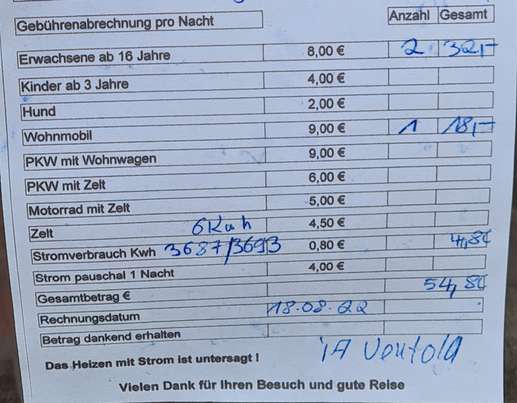 Gebührenabrechnung pro Nacht Anzahl Gesamt
Erwachsene ab 16 Jahre 8,00 € 2 32,-
Kinder ab 3 Jahre 4,00 €
Hund 2,00 €
Wohnmobil 9,00 € 1 18,-
PKW mit Wohnwagen 9,00 €
PKW mit Zelt 6,00 €
Motorrad mit Zelt 5,00 €
Zelt 6Kwh 4,50 €
Stromverbrauch Kwh 3687/3693 0,80 € 4,80
Strom pauschal 1 Nacht 4,00 €
Gesamtbetrag € 54,80
Rechnungsdatum 18.08.22
Betrag dankend erhalten
Das Heizen mit Strom ist untersagt !
Vielen Dank für Ihren Besuch und gute Reise